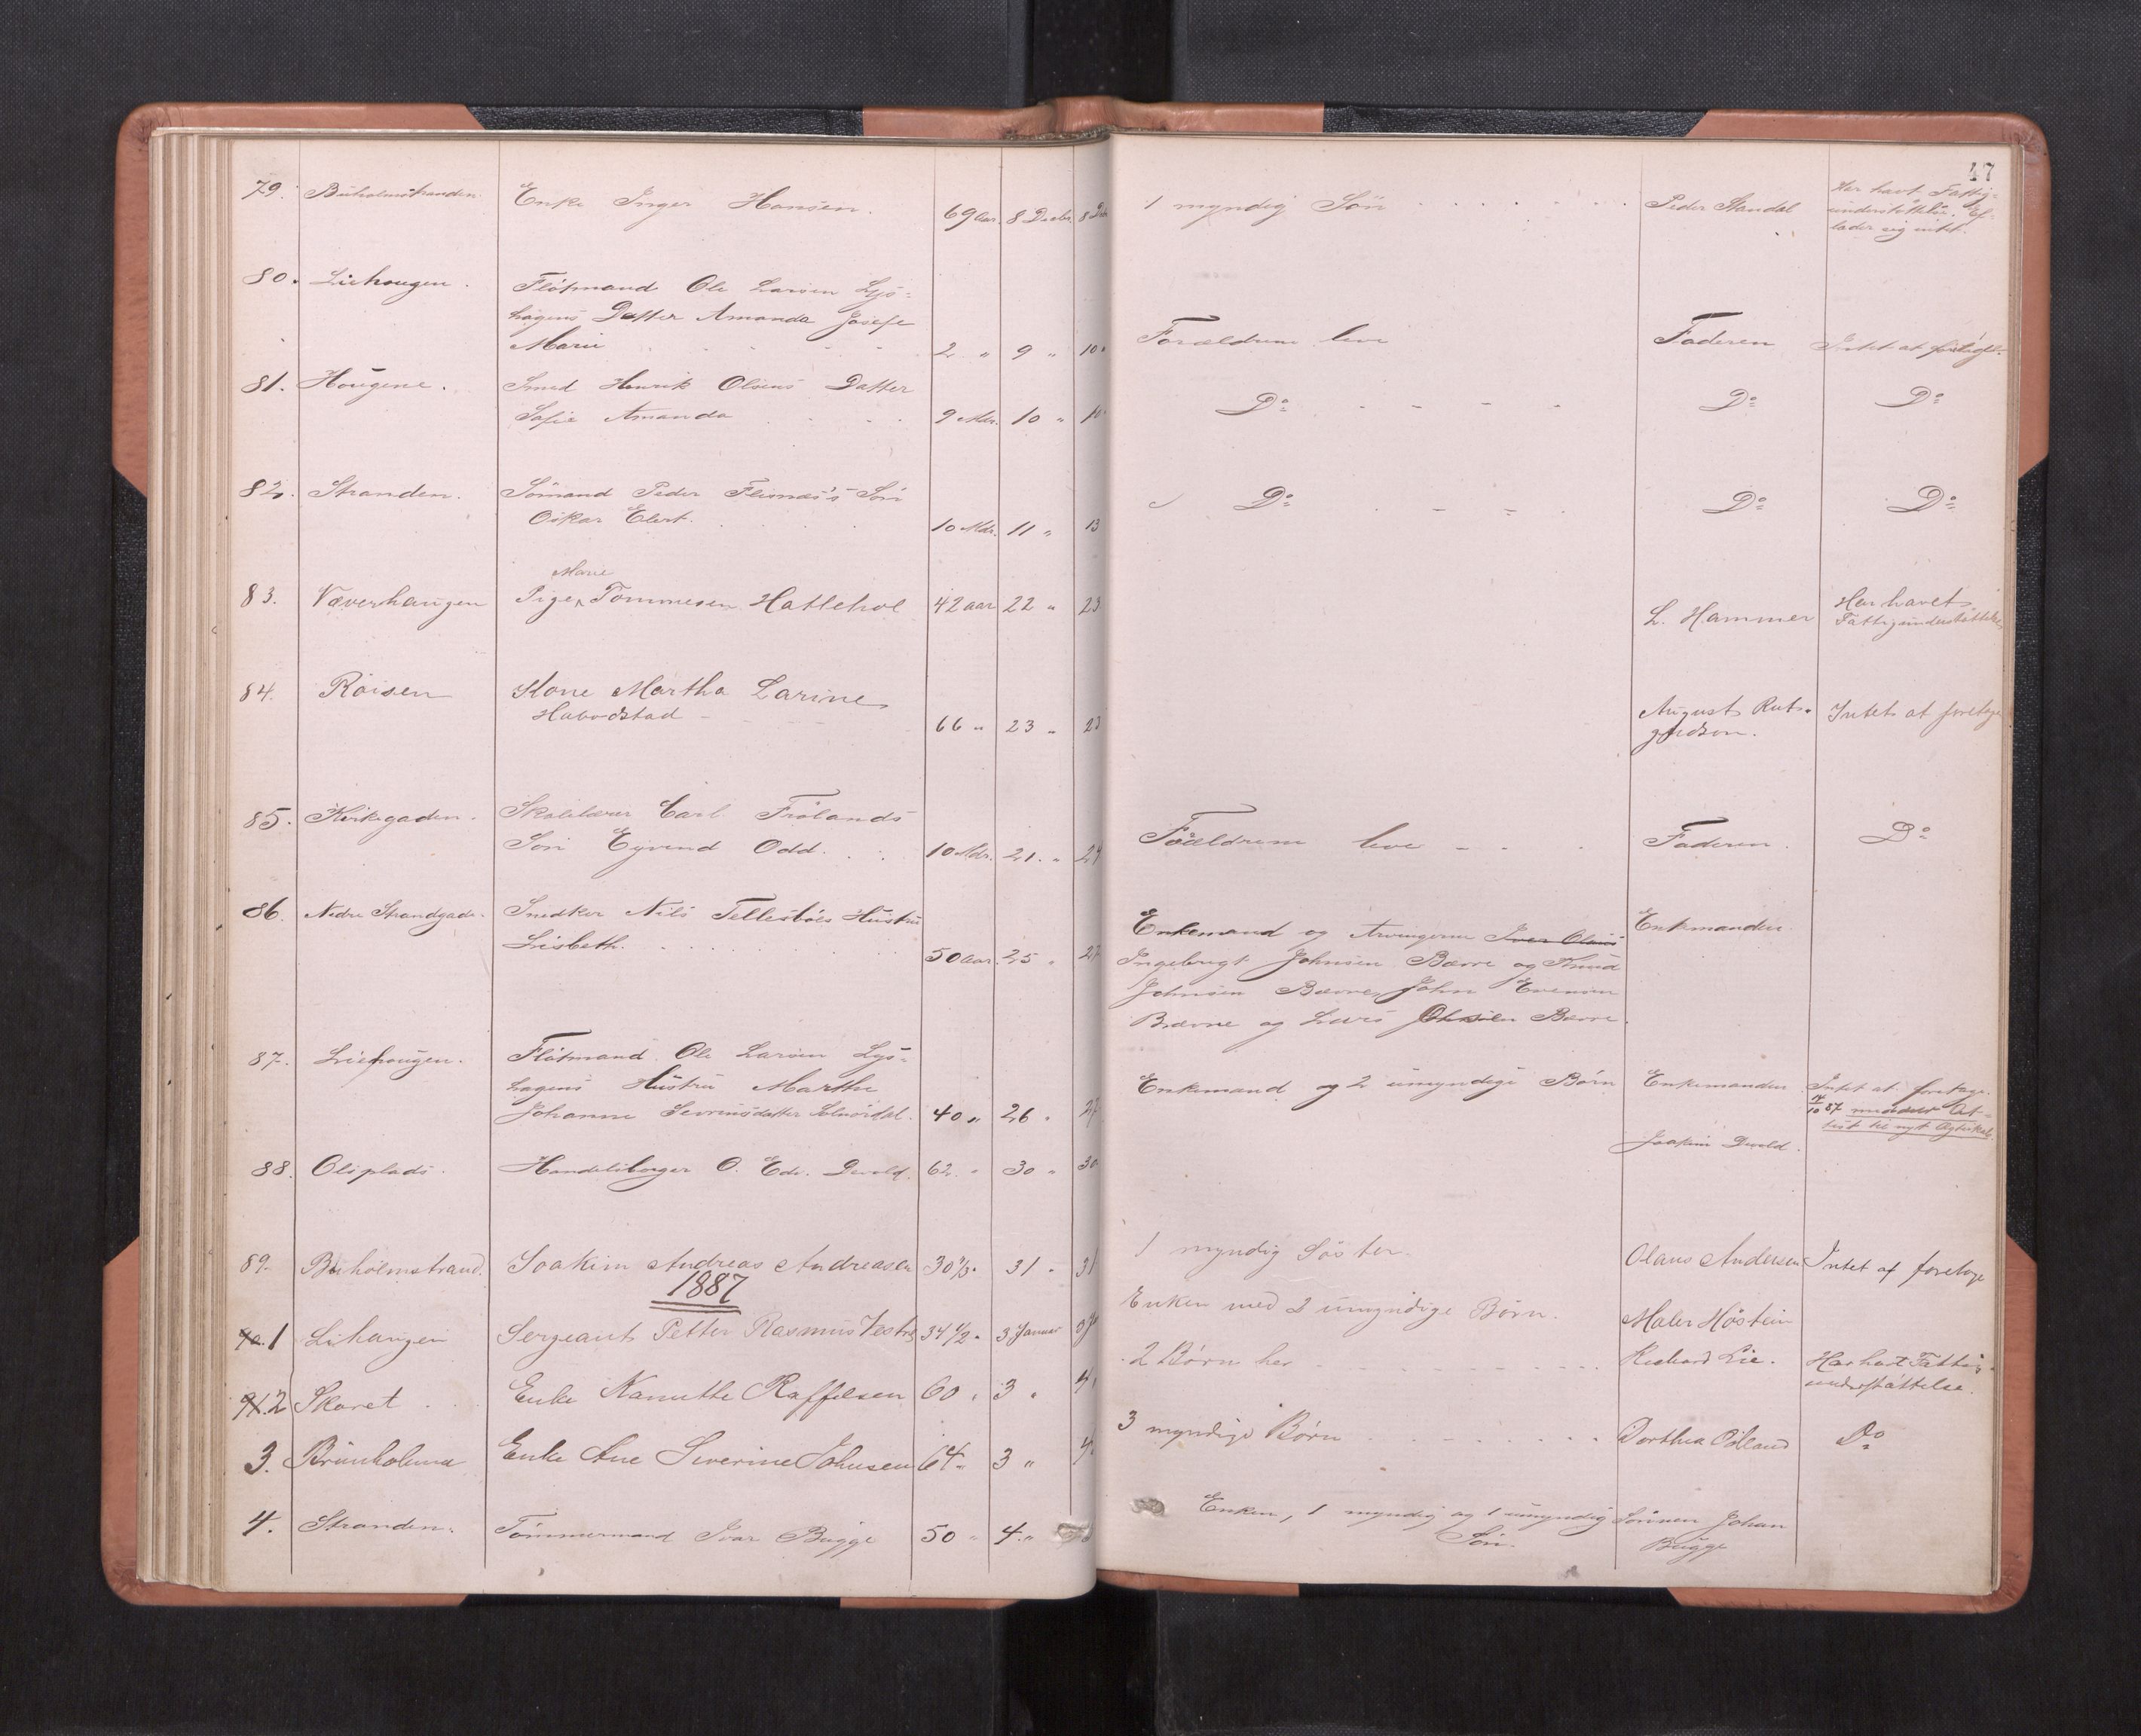 47
79. Buholmstranden. Enke Inger Hansen. 69 Aar. 8 Decbr. 8 1 myndig Søn Peder Standal Har havt Fattig-
understøttelse. Ef-
lader sig intet.
80. Liehougen. Fløtmand Ole Larsen Lys-
hagens Datter Amanda Josefe
Marie 2 " 9 " 10 Forældrene leve Faderen Intet at foretage.
81. Hougene. Smed Henrik Olsens Datter
Sofie Amanda 9 Mdr. 10 " 10 Do Do Do
82. Stranden. Sømand Peder Flemnæs's Søn
Oskar Elert. 10 Mdr. 11 " 13 Do Do Do
Marie
83. Væverhaugen Pige Tømmesen Hatlehol 42 aar 22 " 23 L. Hammer Har havet
Fattigunderstøttelse
84. Røisen Kone Martha Larine
Habodstad 66 " 23 " 23 August Rut-
gudson. Intet at foretage
85. Kirkegaden. Skolelærer Carl Frølands
Søn Eyvind Odd. 10 Mdr. 21. " 24 Foældrene leve Faderen. Do
86. Nedre Strandgade. Snedker Nils Tellesbøes Hustru
Lisbeth. 50 Aar. 25 " 27 Enkemand og Arvingerne Iver Olsens Enkemanden.
Ingebrigt Johnsen Bærre og Knud
Johnsen Bævre, John Evensen
Brævne og Lars Johnsen Bærre.
87. Liehougen. Fløtmand Ole Larsen Lys-
hagens Hustru Marthe
Johanne Severinsdatter Solnørdal. 40 " 26 " 27 Enkemand og 2 umyndige Børn Enkemanden Intet at foretage.
14/10 87 meddelt At-
test til nyt Ægteskab.
88. Olsplads. Handelsborger O. Edv. Devold. 62 " 30 " 30 Joakim Devold.
89. Buholmstrand. Joakim Andreas Andreasen 30 31 " 31 1 myndig Søster Olaus Andersen Intet at foretage
1887
90. 1 Lihaugen Sergeant Petter Rasmus Vestre 34 1/2 " 3 Januar 3 Enken med 2 umyndige Børn. Maler Høstein
91. 2 Skaret Enke Kanutte Raffelsen 60 " 3 " 4 2 Børn her Richard Lie. Har havt Fattig-
understøttelse.
3. Brunholmen Enke Ane Severine Johnsen 64 " 3 " 4 3 myndige Børn Dorthea Ødland Do
4. Stranden. Tømmermand Ivar Bugge 50 " 4 " Enken, 1 myndig og 1 umyndig
Søn. Sønnen Johan
Bugge